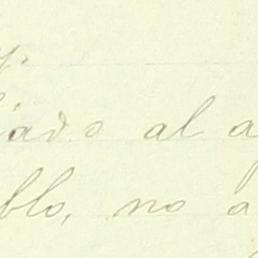 iado al a
blo, no a